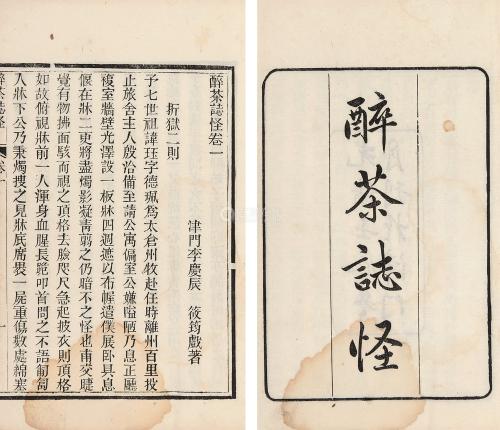 醉茶誌怪
醉茶誌怪卷一
津門李慶辰 筱筠戲著
折獄二則
予七世祖諱珏字德珮為太倉州牧赴任時離州百里投
止旅舍主人殷洽備至請公寓偏室公嫌隘陋乃息正廳
複室牆壁光澤設一板牀四週遮以布幄遣僕展臥具息
偃在牀二更將盡燭影凝青翦之仍暗不之怪也甫交睫
覺有物拂面駭而視之頂格去臉咫尺急起披衣則頂格
如故俯視牀前一人渾身血腥長跪叩首問之不語匍匐
入牀下公乃秉燭搜之見牀底席裹一屍重傷數處綿塞
醉茶誌怪 卷一 一